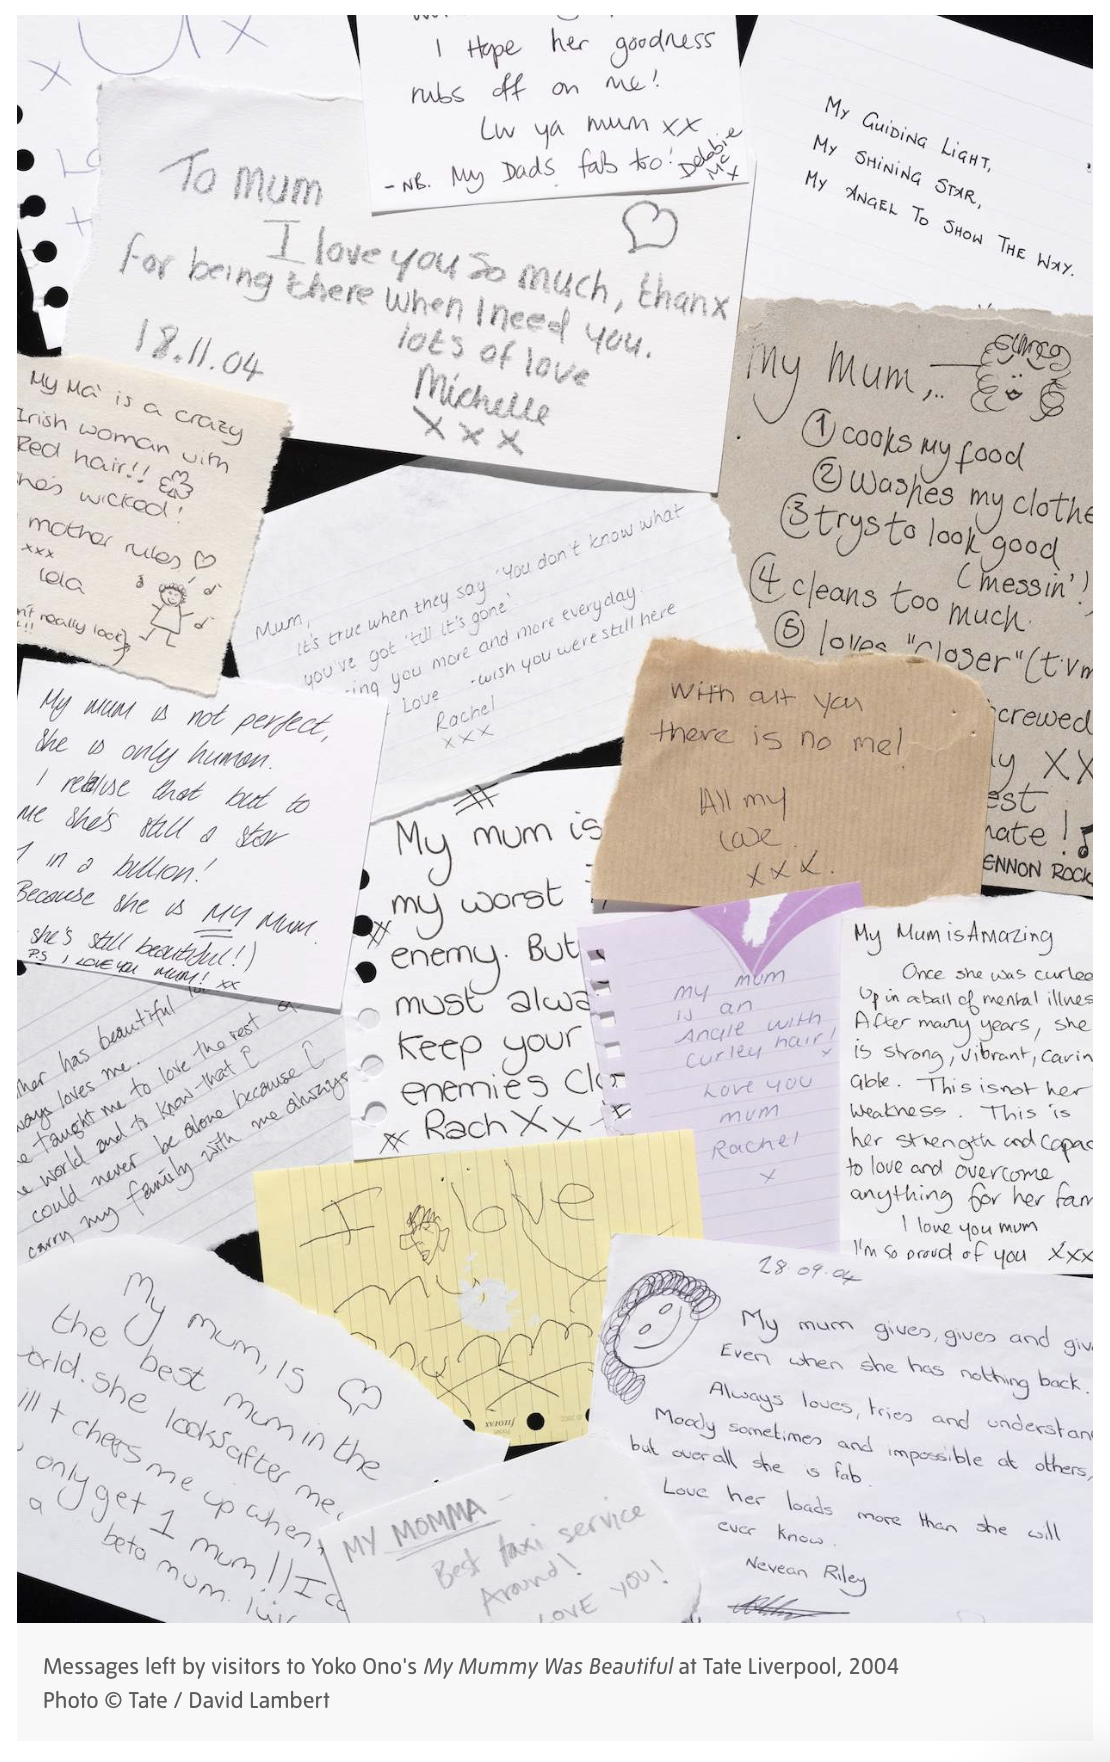 I Hope her goodness
rubs off on me!
Luv ya mum xx
- NB. My Dads fab too! Debbie
Mc x
My Guiding Light,
My Shining Star,
My Angel To Show The Way.
To mum
I love you so much, thanx
for being there when I need you.
lots of love
Michelle
x x x
18.11.04
My Mum,..
① cooks my food
② washes my clothe
③ trys to look good
(messin')
④ cleans too much.
⑤ loves "Closer" (t.v m
crewed
y XX
est
ate!
ENNON ROCK
My Ma is a crazy
Irish woman with
Red hair!!
he's wicked!
mother rules
xxx
lola
n't really look
!!
Mum,
it's true when they say 'You don't know what
you've got 'till it's gone'
ing you more and more everyday.
Love -wish you were still here
Rachel
xxx
My mum is not perfect,
She is only human.
I realise that but to
me she's still a star
1 in a billion!
Because she is MY Mum.
she's still beautiful!)
P.S I LOVE YOU MUM! xx
With out you
there is no me!
All my
love
xxx.
My mum is
my worst
enemy. But
must alwa
keep your
enemies clo
Rach Xx
my mum
is an
Angle with
curley hair!
x
Love you
mum
Rachel
x
My Mum is Amazing
Once she was curled
up in a ball of mental illnes
After many years, she
is strong, vibrant, carin
able. This is not her
weakness. This is
her strength and capac
to love and overcome
anything for her fam
I love you mum
I'm so proud of you xxx
her has beautiful
ways loves me.
e taught me to love the rest
e world and to know that I
could never be alone because I
carry my family with me always
I love
my
28.09.04
My mum gives, gives and giv
Even when she has nothing back.
Always loves, tries and understan
Moody sometimes and impossible at others,
but overall she is fab.
Love her loads more than she will
ever know.
Nevean Riley
My mum, is
the best mum in the
orld. she looks after me,
ill + cheers me up when
only get 1 mum!! I co
a beta mum. luv
MY MOMMA -
Best taxi service
Around!
LOVE YOU!
Messages left by visitors to Yoko Ono's My Mummy Was Beautiful at Tate Liverpool, 2004
Photo © Tate / David Lambert